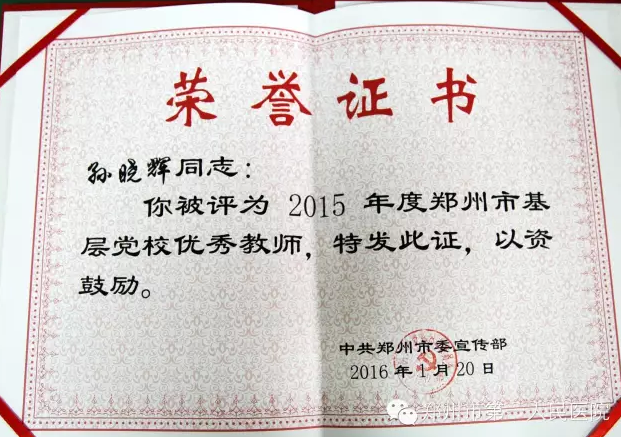 荣誉证书
孙晓辉同志：
你被评为 2015 年度郑州市基
层党校优秀教师，特发此证，以资
鼓励。
中共郑州市委宣传部
2016 年 1 月 20 日
郑州市第一人民医院